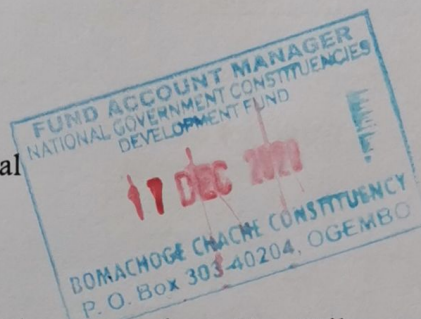 al
FUND ACCOUNT MANAGER
NATIONAL GOVERNMENT CONSTITUENCIES
DEVELOPMENT FUND
17 DEC 2020
BOMACHOGE CHACHE CONSTITUENCY
P. O. Box 303-40204, OGEMBO